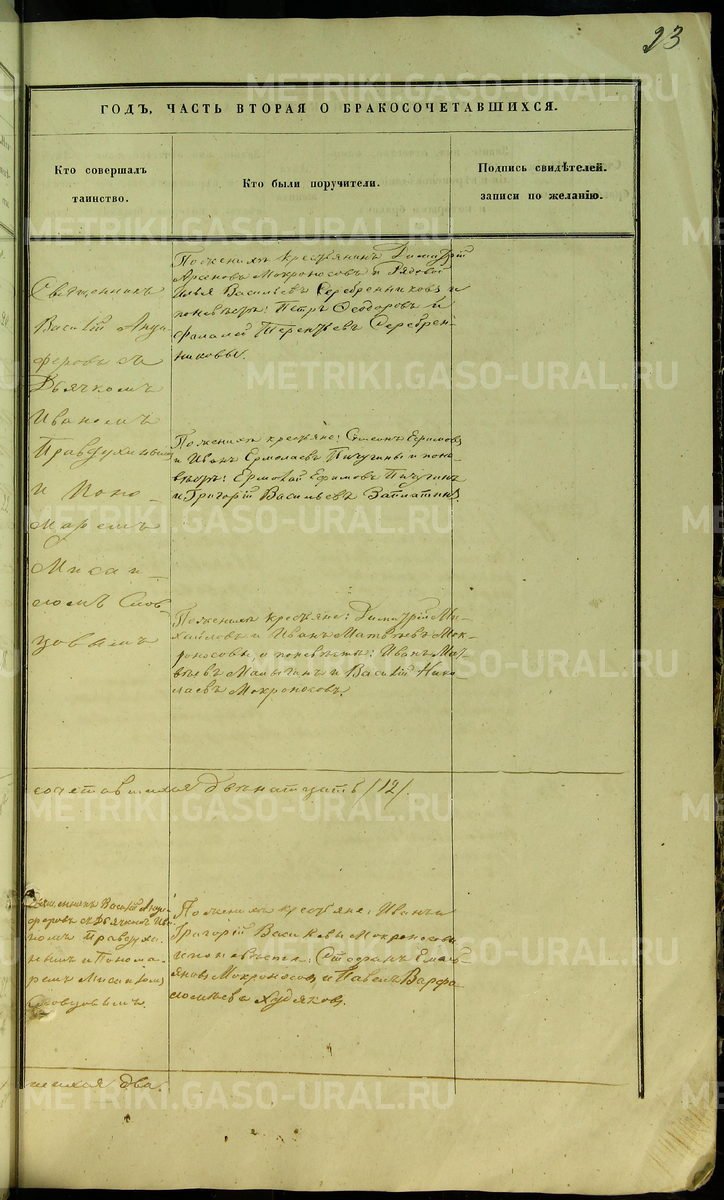 23
ГОДЪ, ЧАСТЬ ВТОРАЯ О БРАКОСОЧЕТАВШИХСЯ.
Кто совершалъ
таинство.
Кто были поручители.
Подпись свидѣтелей
записи по желанію.
Священникъ
Василій Анци
феровъ съ
Дьячкомъ
Иваномъ
Правдухинымъ
и Поно
маремъ
Мисаи
ломъ Слов
цовымъ
По женихѣ крестьянинъ Димитрій
Арсеновъ Мокроносовъ и Рядовой
Илья Васильевъ Серебренниковъ и
по невѣстѣ: Петръ Ѳеодоровъ и
Фалалей Терентьевъ Серебрен-
никовы.
По женихѣ крестьяне: Симеонъ Ефимовъ
и Иванъ Ермолаевъ Пичугины и по не
вѣстѣ: Ермолай Ефимовъ Пичугинъ
и Григорій Васильевъ Заплатинъ
По женихѣ крестьяне: Димитрій Ми-
хайловъ и Иванъ Матвѣевъ Мок-
роносовы, и по невѣстѣ: Иванъ Мат-
вѣевъ Малыгинъ и Василій Нико
лаевъ Мокроносовъ.
сочетавшихся двѣнатцать /12/.
Священникъ Василій Анци
феровъ съ Дьячкомъ Ива
номъ Правдухи-
нымъ и Понома-
ремъ Мисаиломъ
Словцовымъ.
По женихѣ крестьяне: Иванъ и
Григорій Васильевы Мокроносовы
и по невѣстѣ: Стефанъ Емель
яновъ Мокроносовъ и Павелъ Варфо
ломѣевъ Худяковъ.
шихся два.
METRIKI.GASO-URAL.RU